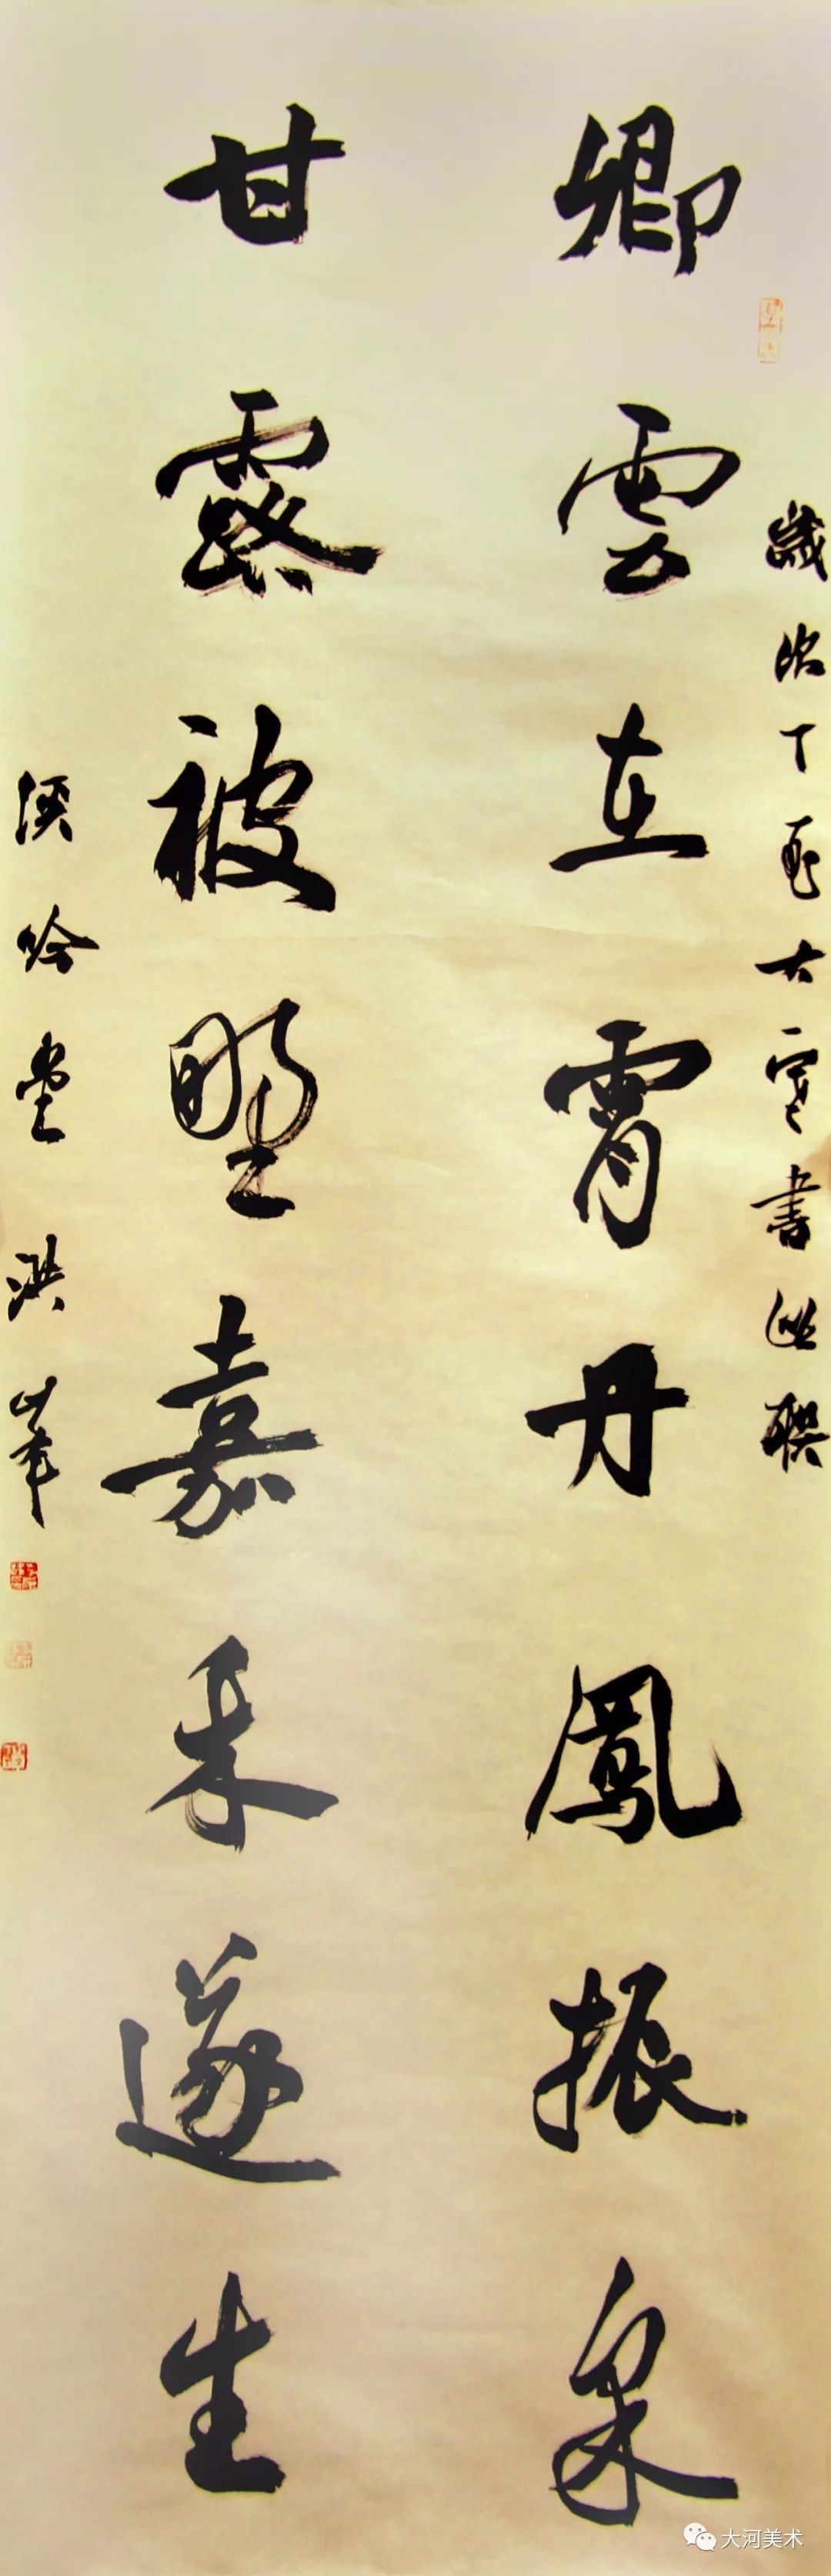 歲次丁酉大寒書此聯
卿雲在霄丹鳳振采
甘露被野嘉禾遂生
吟堂洪峯
大河美术